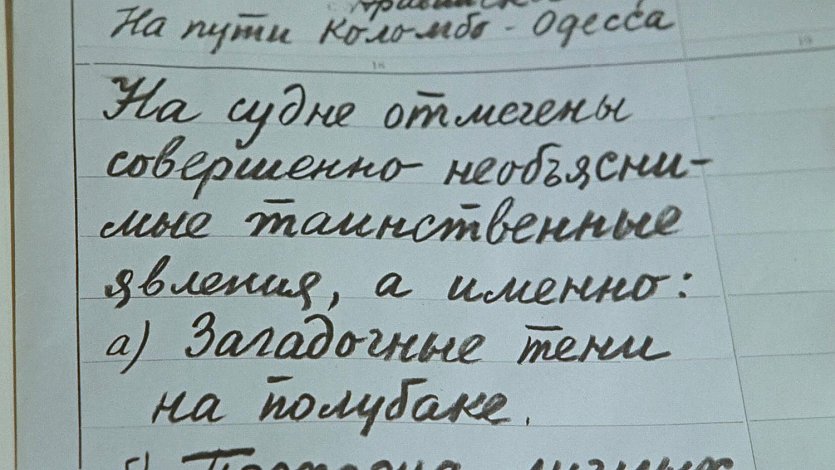 На пути Коломбо - Одесса
18
19
На судне отмечены
совершенно необъясни-
мые таинственные
явления, а именно:
а) Загадочные тени
на полубаке.